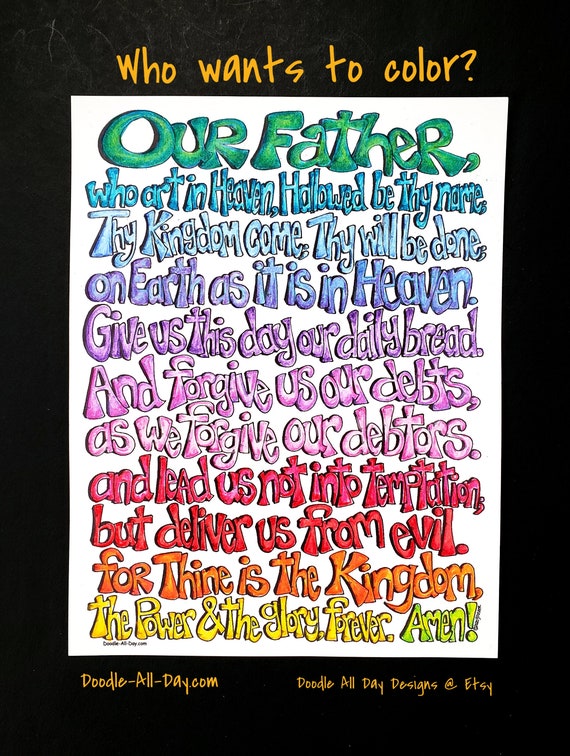 Who wants to color?
Our Father,
who art in Heaven, Hallowed be thy name;
Thy Kingdom come; Thy will be done;
on Earth as it is in Heaven.
Give us this day our daily bread.
And forgive us our debts,
as we forgive our debtors.
and lead us not into temptation;
but deliver us from evil.
for Thine is the Kingdom,
the Power & the glory, forever. Amen!
Doodle-All-Day.com
Doodle-All-Day.com
Doodle All Day Designs @ Etsy